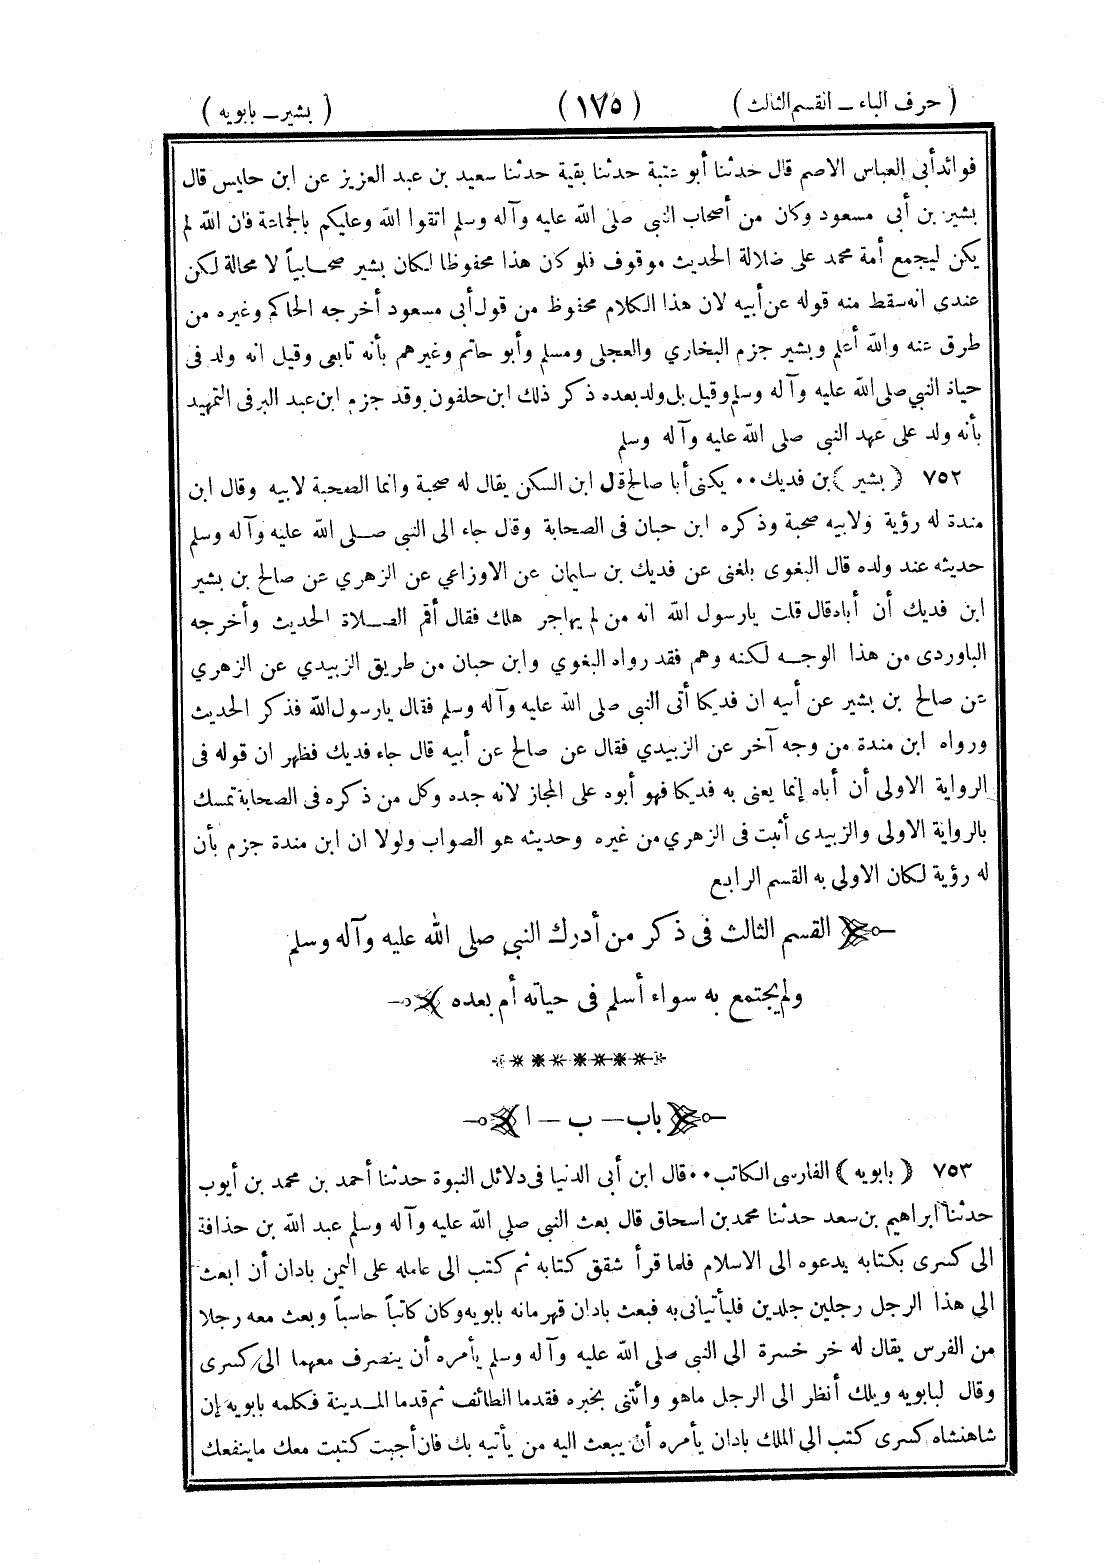 ( حرف الباء ــ القسم الثالث ) ( ١٧٥ ) ( بشير ــ بابويه )
فوائد أبى العباس الاصم قال حدثنا أبو عتبة حدثنا بقية حدثنا سعيد بن عبد العزيز عن ابن حليس قال
بشير بن أبى مسعود وكان من أصحاب النبى صلى الله عليه وآله وسلم اتقوا الله وعليكم بالجماعة فان الله لم
يكن ليجمع أمة محمد على ضلالة الحديث موقوف فلو كان هذا محفوظا لكان بشير صحابياً لا محالة لكن
عندى انه سقط منه قوله عن أبيه لان هذا الكلام محفوظ من قول أبى مسعود أخرجه الحاكم وغيره من
طرق عنه والله أعلم وبشير جزم البخاري والعجلى ومسلم وأبو حاتم وغيرهم بأنه تابعى وقيل انه ولد فى
حياة النبي صلى الله عليه وآله وسلم وقيل بل ولد بعده ذكر ذلك ابن خلفون وقد جزم ابن عبد البر فى التمهيد
بأنه ولد على عهد النبى صلى الله عليه وآله وسلم
٧٥٢ ( بشير ) بن فديك ٠٠ يكنى أبا صالح قال ابن السكن يقال له صحبة وانما الصحبة لابيه وقال ابن
مندة له رؤية ولابيه صحبة وذكره ابن حبان فى الصحابة وقال جاء الى النبى صلى الله عليه وآله وسلم
حديثه عند ولده قال البغوى بلغنى عن فديك بن سليمان عن الاوزاعي عن الزهري عن صالح بن بشير
ابن فديك أن أباه قال قلت يارسول الله انه من لم يهاجر هلك فقال أقم الصلاة الحديث وأخرجه
الباوردى من هذا الوجه لكنه وهم فقد رواه البغوي وابن حبان من طريق الزبيدي عن الزهري
عن صالح بن بشير عن أبيه ان فديكا أتى النبى صلى الله عليه وآله وسلم فقال يارسول الله فذكر الحديث
ورواه ابن مندة من وجه آخر عن الزبيدي فقال عن صالح عن أبيه قال جاء فديك فظهر ان قوله فى
الرواية الاولى أن أباه إنما يعنى به فديكا فهو أبوه على المجاز لانه جده وكل من ذكره فى الصحابة تمسك
بالرواية الاولى والزبيدى أثبت فى الزهري من غيره وحديثه هو الصواب ولولا ان ابن مندة جزم بأن
له رؤية لكان الاولى به القسم الرابع
القسم الثالث فى ذكر من أدرك النبي صلى الله عليه وآله وسلم
ولم يجتمع به سواء أسلم فى حياته أم بعده
باب ــ ب ــ ا
٧٥٣ ( بابويه ) الفارسى الكاتب ٠٠ قال ابن أبى الدنيا فى دلائل النبوة حدثنا أحمد بن محمد بن أيوب
حدثنا ابراهيم بن سعد حدثنا محمد بن اسحاق قال بعث النبى صلى الله عليه وآله وسلم عبد الله بن حذافة
الى كسرى بكتابه يدعوه الى الاسلام فلما قرأ شقق كتابه ثم كتب الى عامله على اليمن بادان أن ابعث
الي هذا الرجل رجلين جلدين فليأتيانى به فبعث بادان قهرمانه بابويه وكان كاتباً حاسباً وبعث معه رجلا
من الفرس يقال له خر خسرة الى النبى صلى الله عليه وآله وسلم يأمره أن ينصرف معهما الى كسرى
وقال لبابويه ويلك أنظر الى الرجل ماهو وائتنى بخبره فقدما الطائف ثم قدما المدينة فكلمه بابويه إن
شاهنشاه كسرى كتب الى الملك بادان يأمره أن يبعث اليه من يأتيه بك فان أجبت كتبت معك ماينفعك